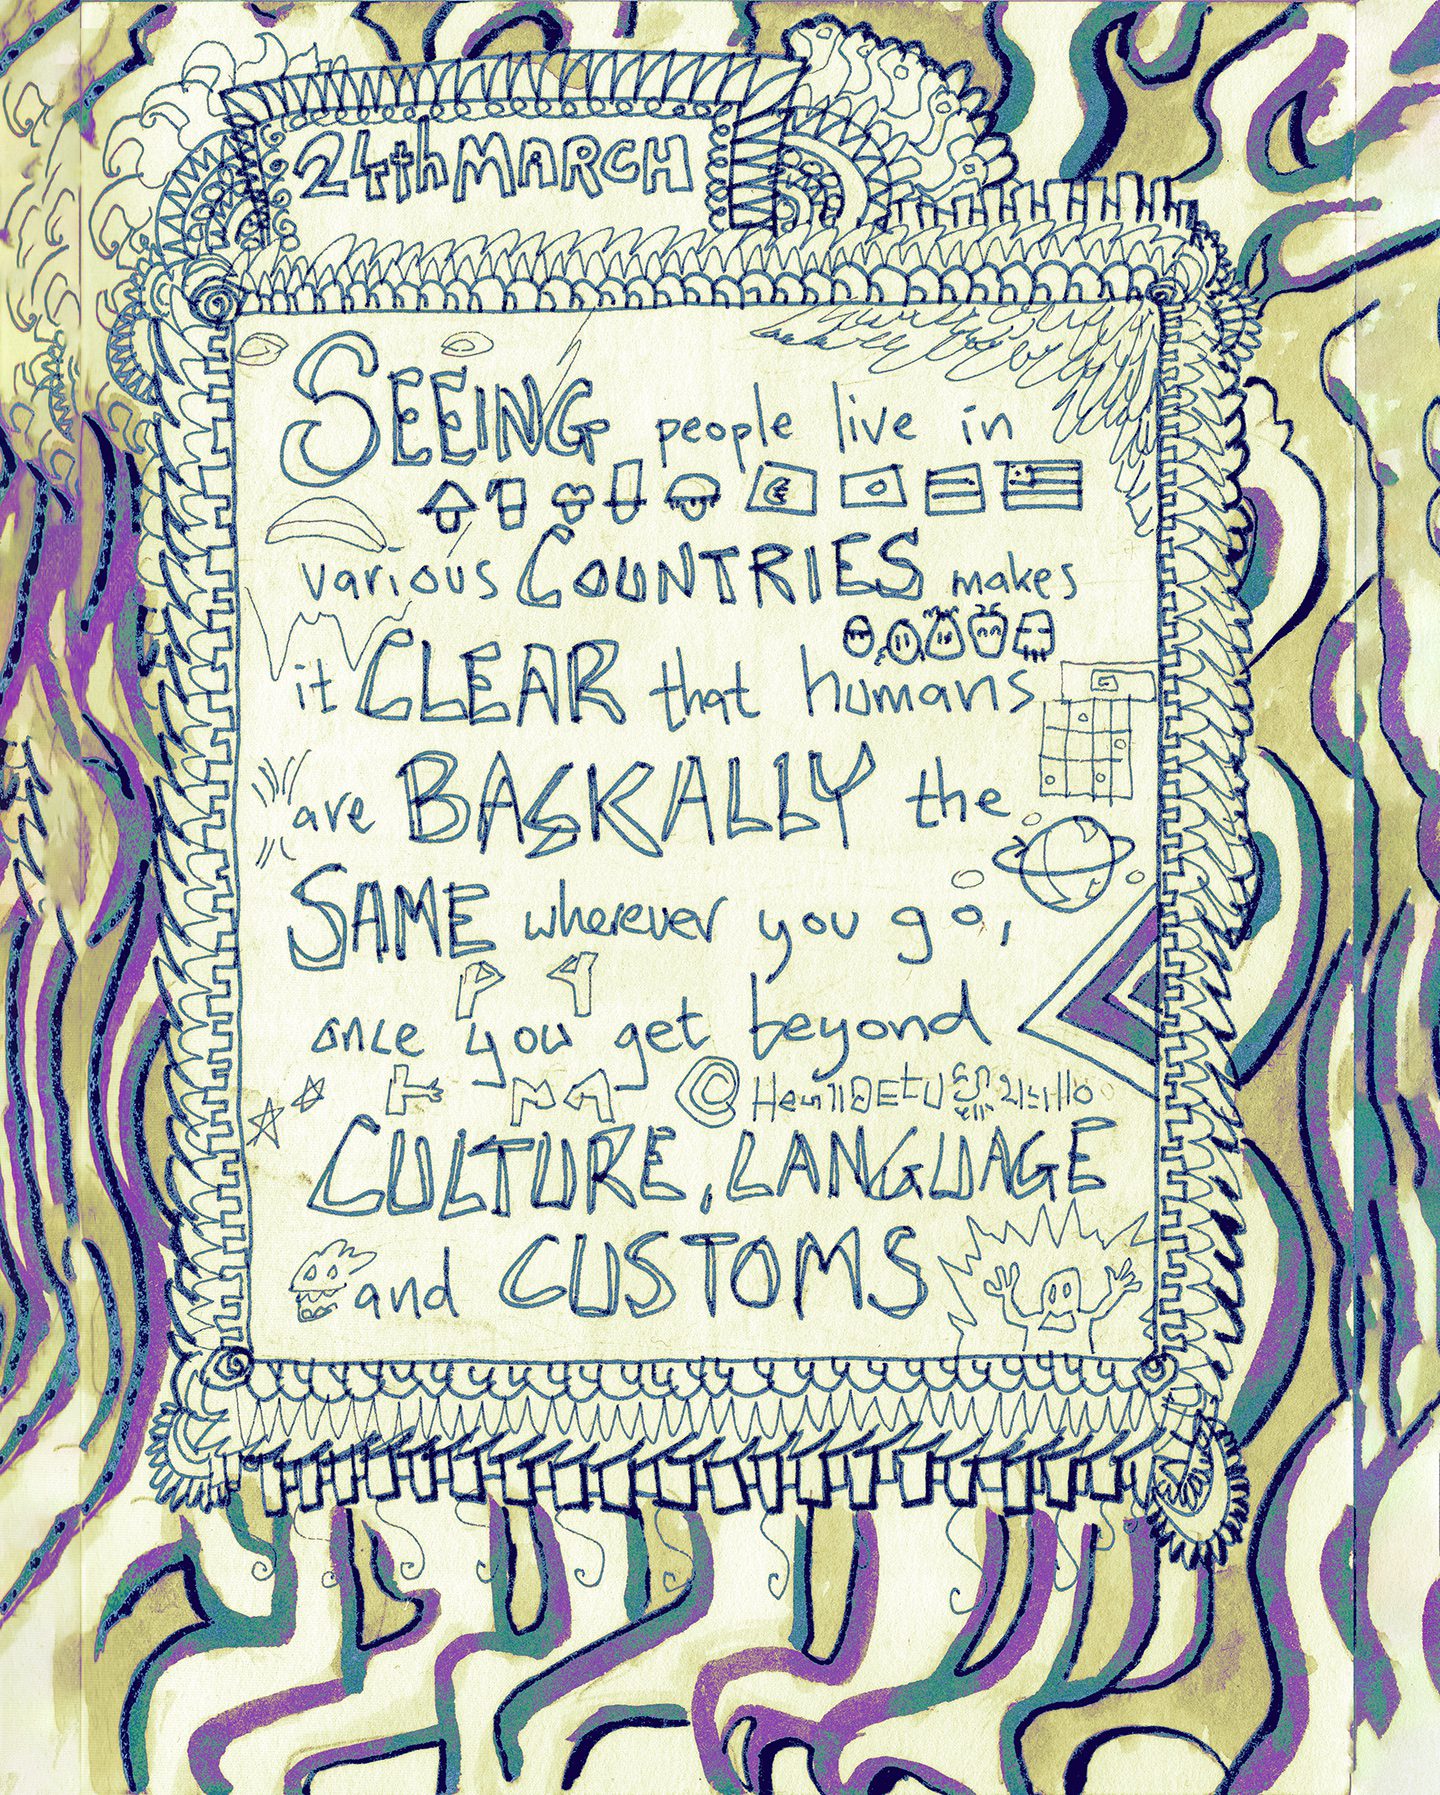 24th MARCH
SEEING people live in
various COUNTRIES makes
it CLEAR that humans
are BASKALLY the
SAME wherever you go,
once you get beyond
CULTURE, LANGUAGE
and CUSTOMS